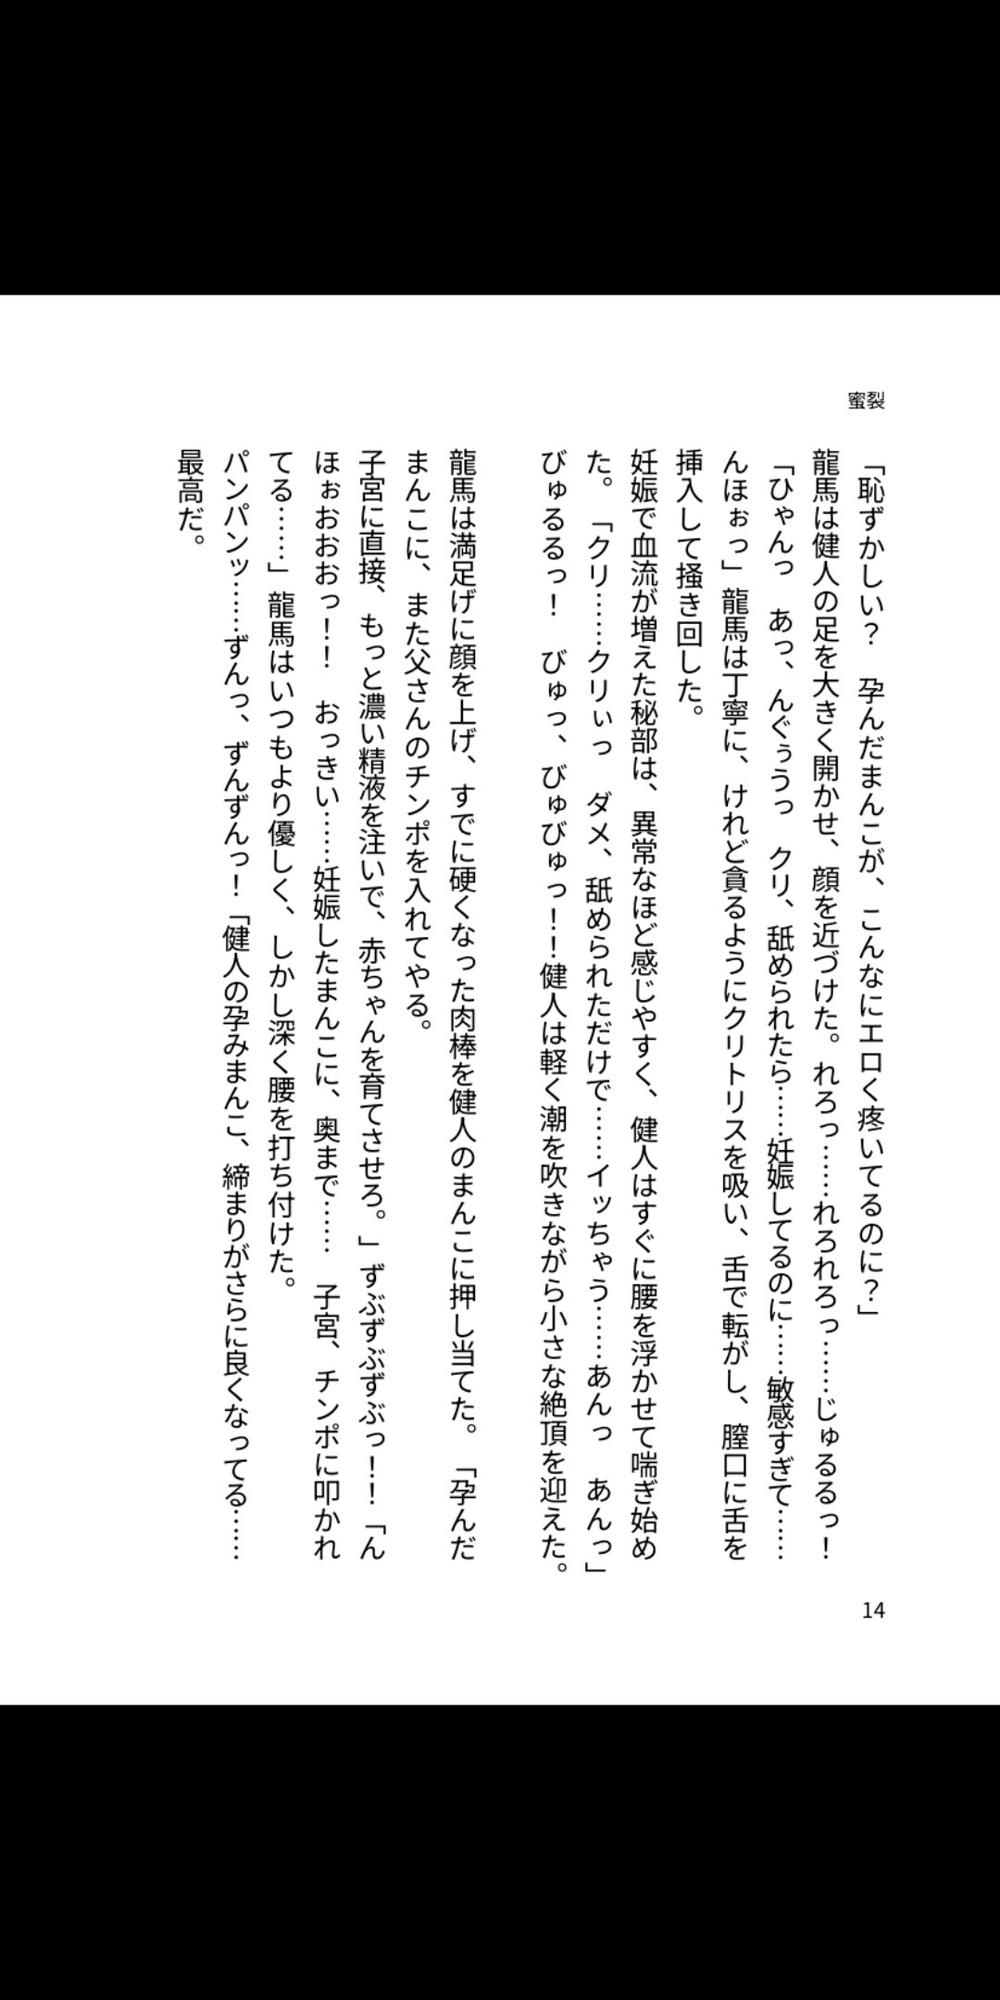 蜜裂
「恥ずかしい？　孕んだまんこが、こんなにエロく疼いてるのに？」
龍馬は健人の足を大きく開かせ、顔を近づけた。れろっ……れろれろっ……じゅるるっ！
「ひゃんっ　あっ、んぐぅうっ　クリ、舐められたら……妊娠してるのに……敏感すぎて……
んほぉっ」龍馬は丁寧に、けれど貪るようにクリトリスを吸い、舌で転がし、膣口に舌を
挿入して掻き回した。
妊娠で血流が増えた秘部は、異常なほど感じやすく、健人はすぐに腰を浮かせて喘ぎ始め
た。「クリ……クリぃっ　ダメ、舐められただけで……イッちゃう……あんっ　あんっ」
びゅるるっ！　びゅっ、びゅびゅっ！！健人は軽く潮を吹きながら小さな絶頂を迎えた。
龍馬は満足げに顔を上げ、すでに硬くなった肉棒を健人のまんこに押し当てた。「孕んだ
まんこに、また父さんのチンポを入れてやる。
子宮に直接、もっと濃い精液を注いで、赤ちゃんを育てさせろ。」ずぶずぶずぶっ！！「ん
ほぉおおおっ！！　おっきい……妊娠したまんこに、奥まで……　子宮、チンポに叩かれ
てる……」龍馬はいつもより優しく、しかし深く腰を打ち付けた。
パンパンッ……ずんっ、ずんずんっ！「健人の孕みまんこ、締まりがさらに良くなってる……
最高だ。
14